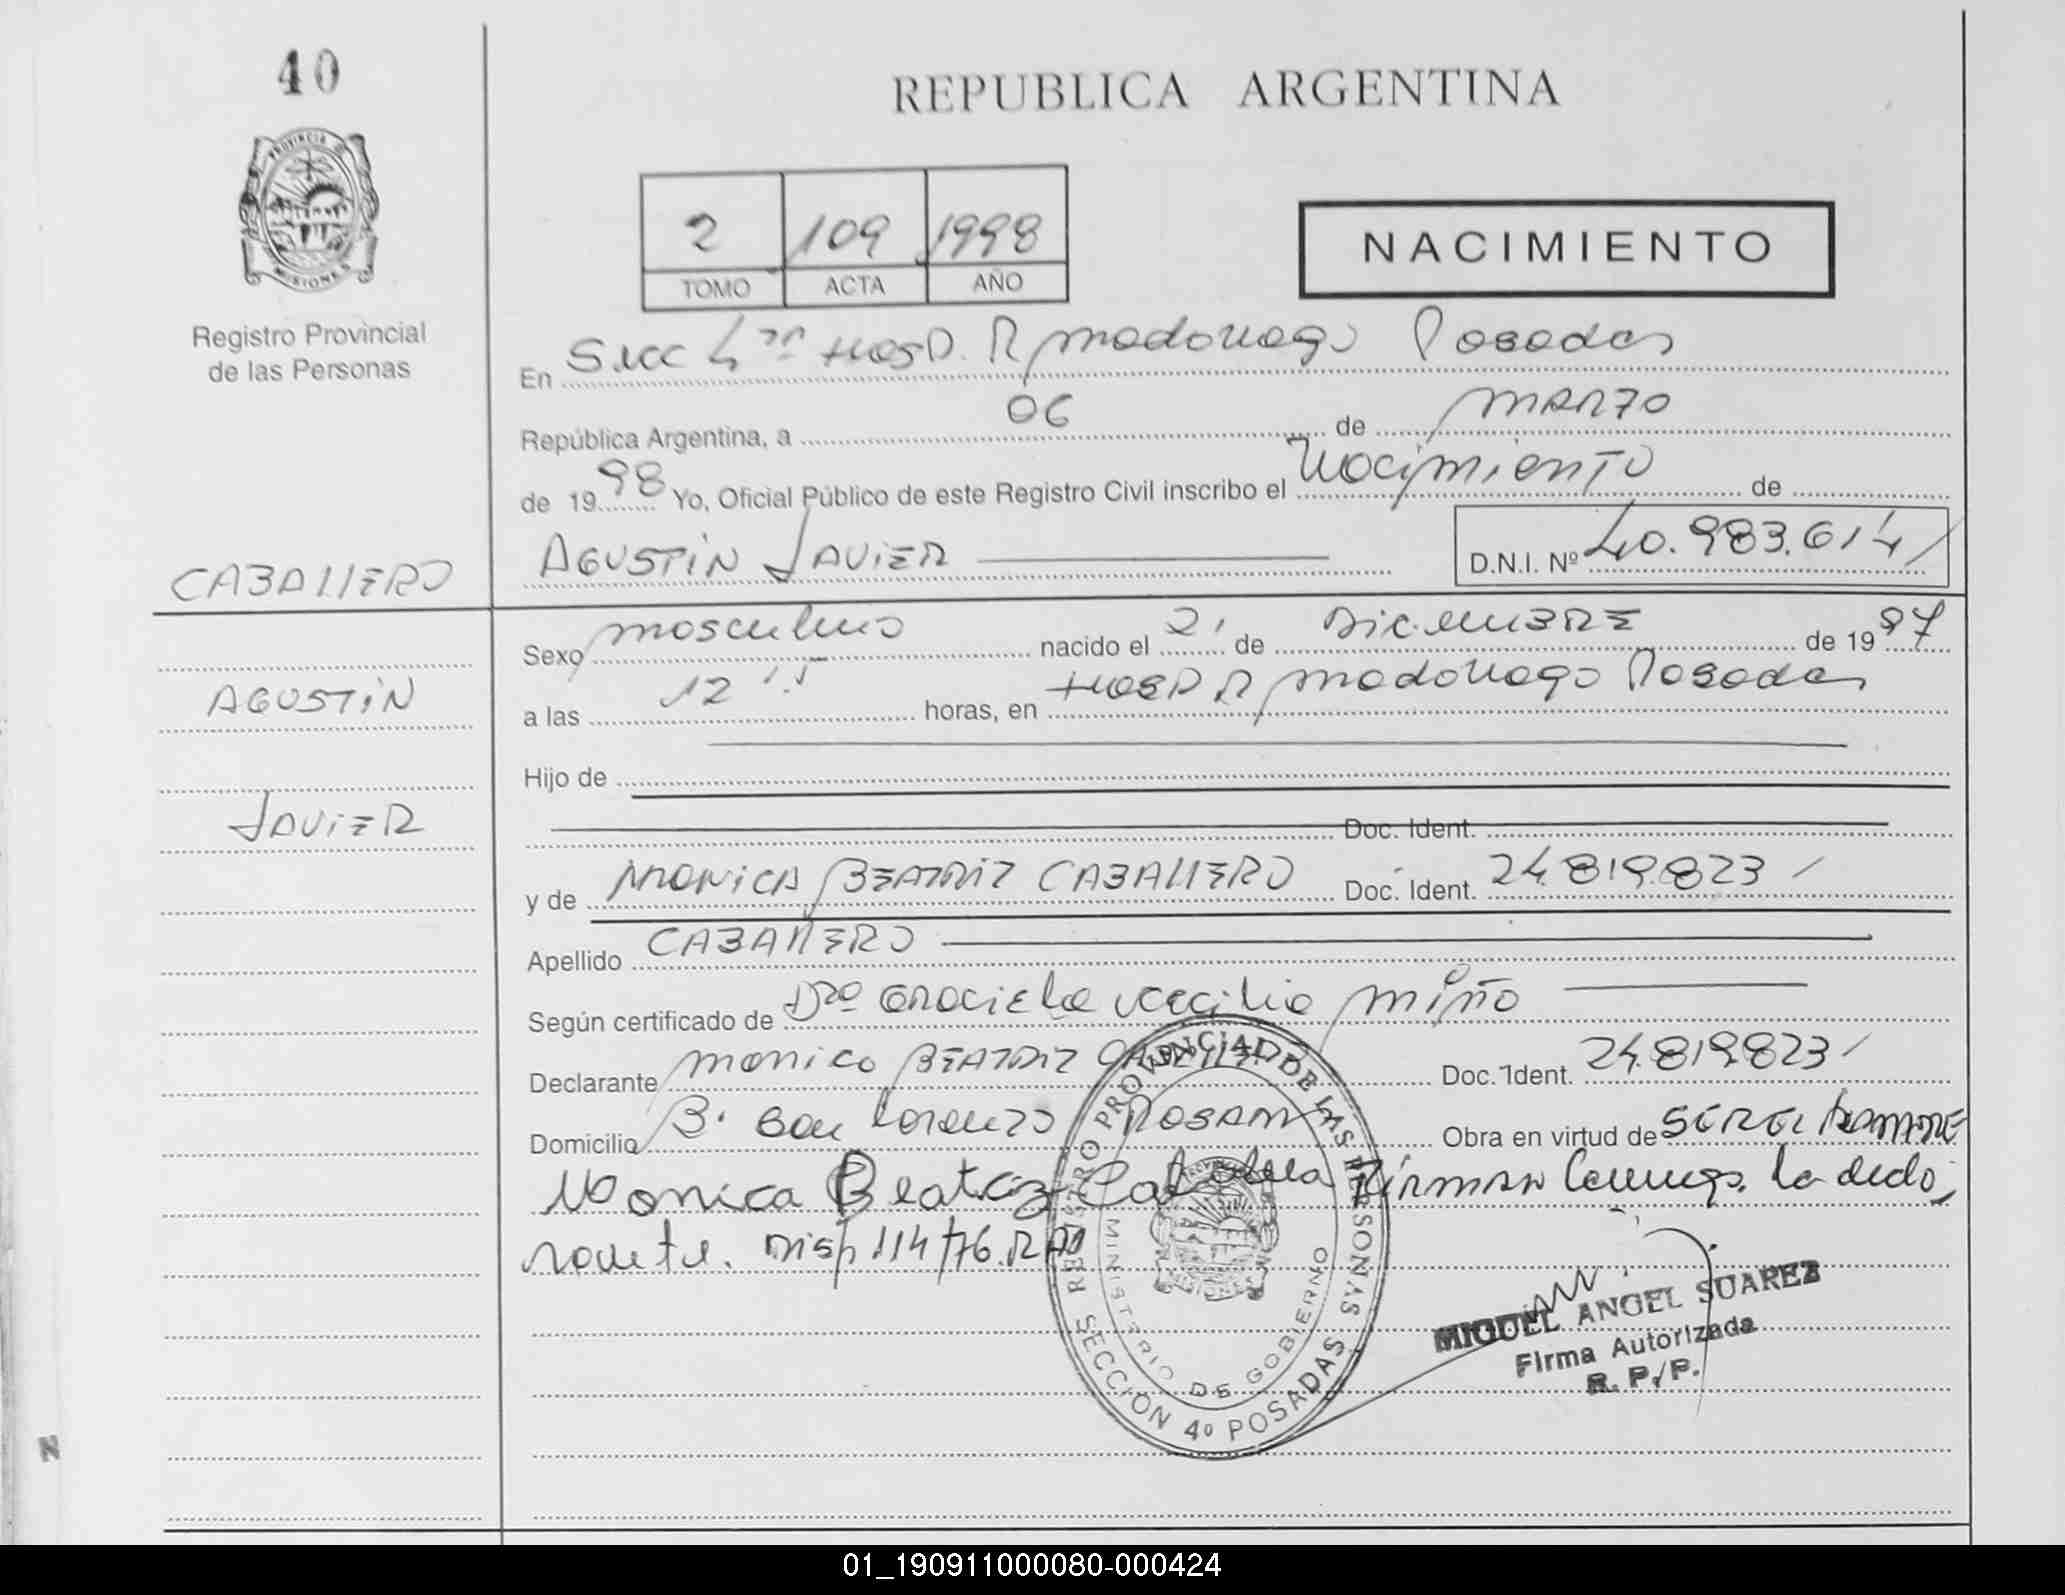 40
REPUBLICA ARGENTINA
PROVINCIA DE MISIONES
2 109 1998
TOMO ACTA AÑO
NACIMIENTO
Registro Provincial
de las Personas
En Secc 4ta Hosp. R Madariaga Posadas
República Argentina, a 06 de MARZO
de 1998 Yo, Oficial Público de este Registro Civil inscribo el Nacimiento de
CABALLERO
AGUSTIN JAVIER D.N.I. Nº 40.983.614/
Sexo masculino nacido el 21 de DICIEMBRE de 1997
AGUSTIN
a las 12 horas, en HOSP R Madariaga Posadas
Hijo de
JAVIER
Doc. Ident.
y de MONICA BEATRIZ CABALLERO Doc. Ident. 24.819.823/
Apellido CABALLERO
Según certificado de Dra Graciela Cecilia Miño
Declarante Monica BEATRIZ CABALLERO Doc. Ident. 24.819.823/
Domicilio B. San Lorenzo Obra en virtud de SER EL
Monica Beatriz FIRMAN la decla
rante. Disp 114/76.
REGISTRO PROVINCIAL DE LAS PERSONAS
MINISTERIO DE GOBIERNO
SECCION 4º POSADAS
MIGUEL ANGEL SUAREZ
Firma Autorizada
R. P./P.
N
01_190911000080-000424